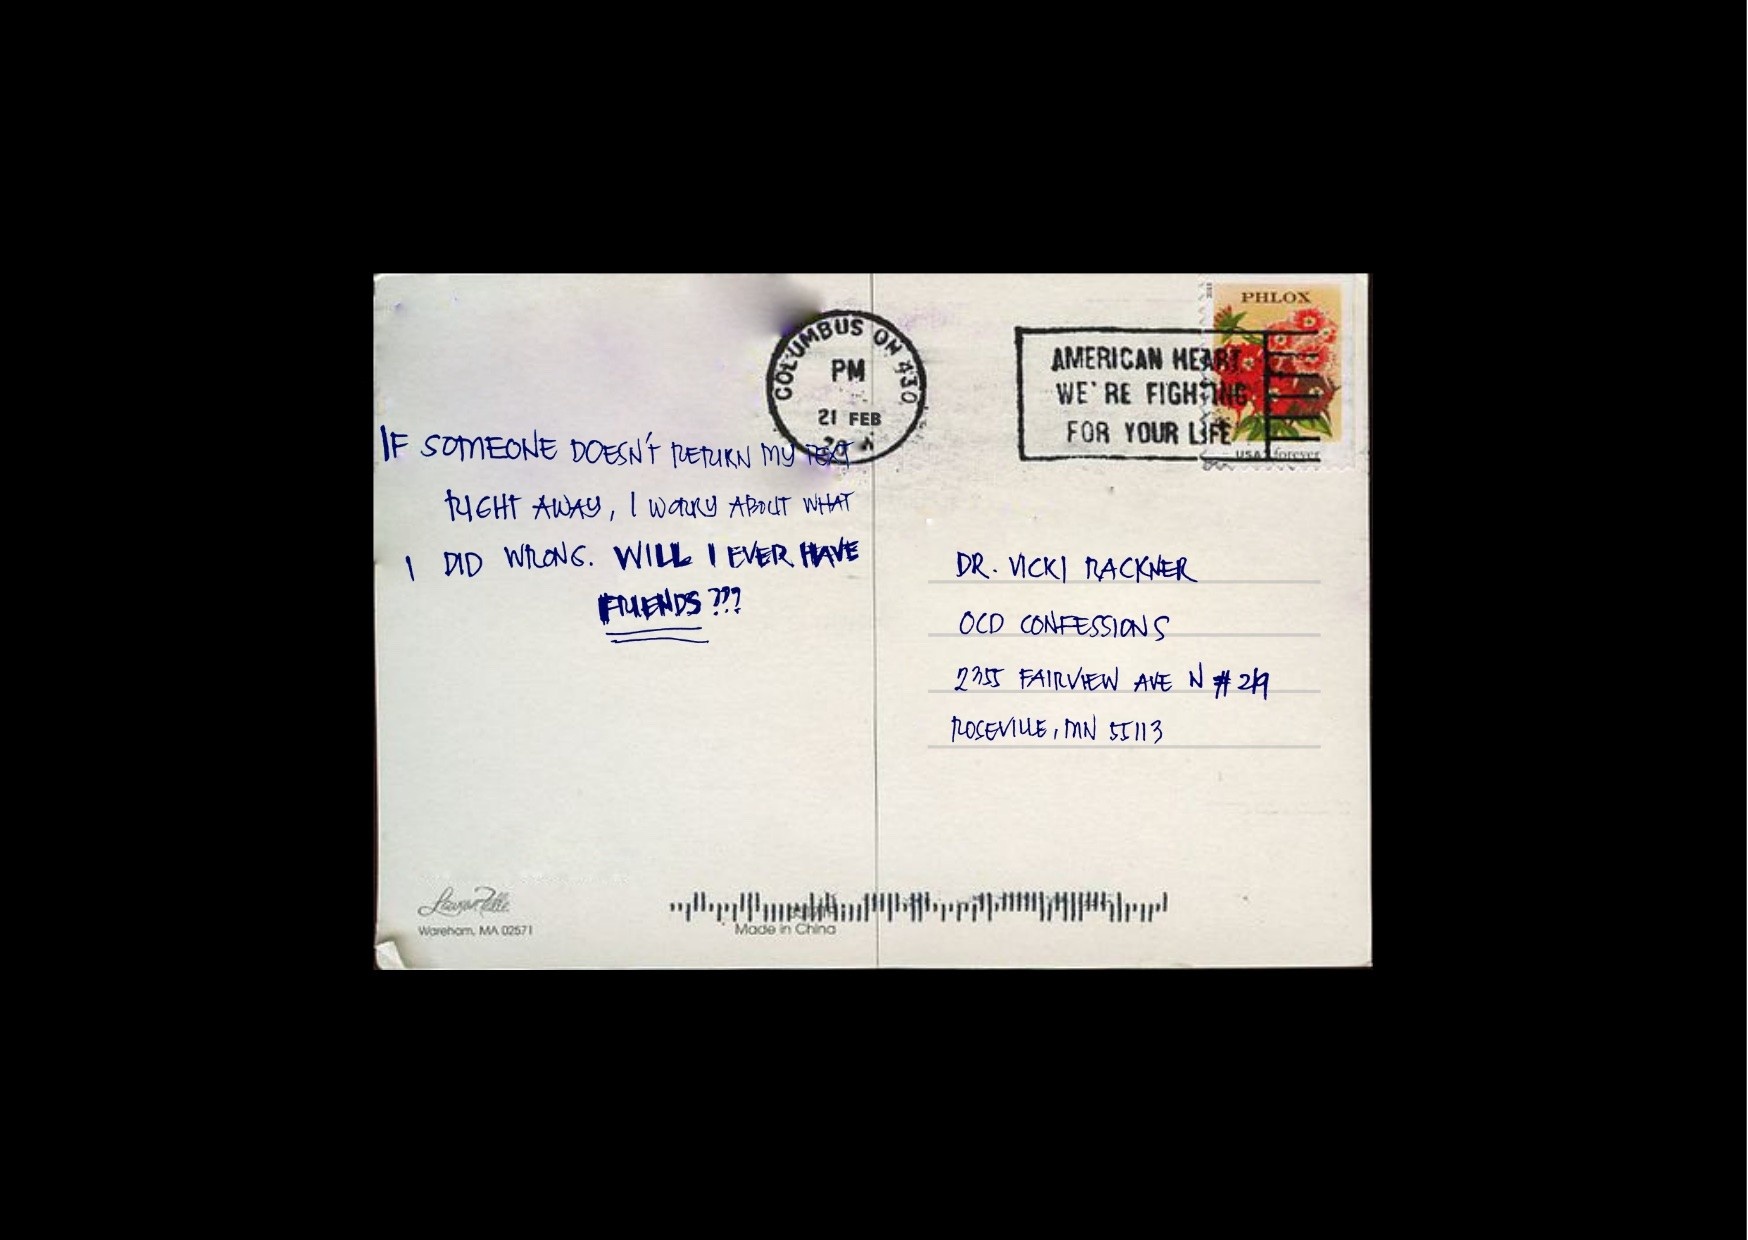 COLUMBUS OH 430
PM
21 FEB
AMERICAN HEART
WE'RE FIGHTING
FOR YOUR LIFE
PHLOX
USA forever
IF SOMEONE DOESN'T RETURN MY TEXT
RIGHT AWAY, I WORRY ABOUT WHAT
I DID WRONG. WILL I EVER HAVE
FRIENDS???
DR. VICKI RACKNER
OCD CONFESSIONS
2355 FAIRVIEW AVE N # 219
ROSEVILLE, MN 55113
Wareham, MA 02571
Made in China